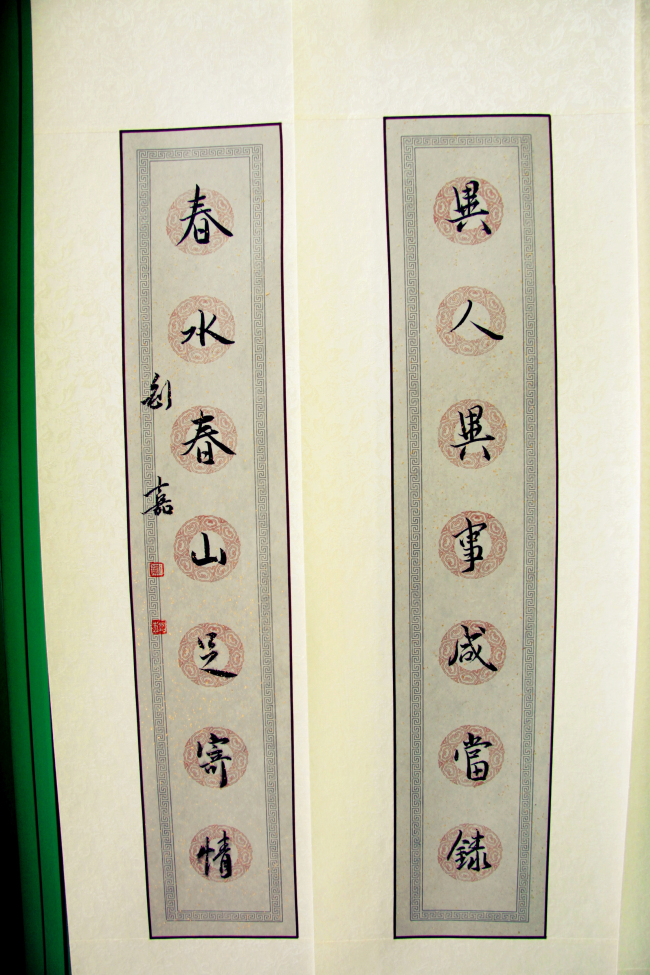 異人異事咸當録
春水春山足寄情
嘉